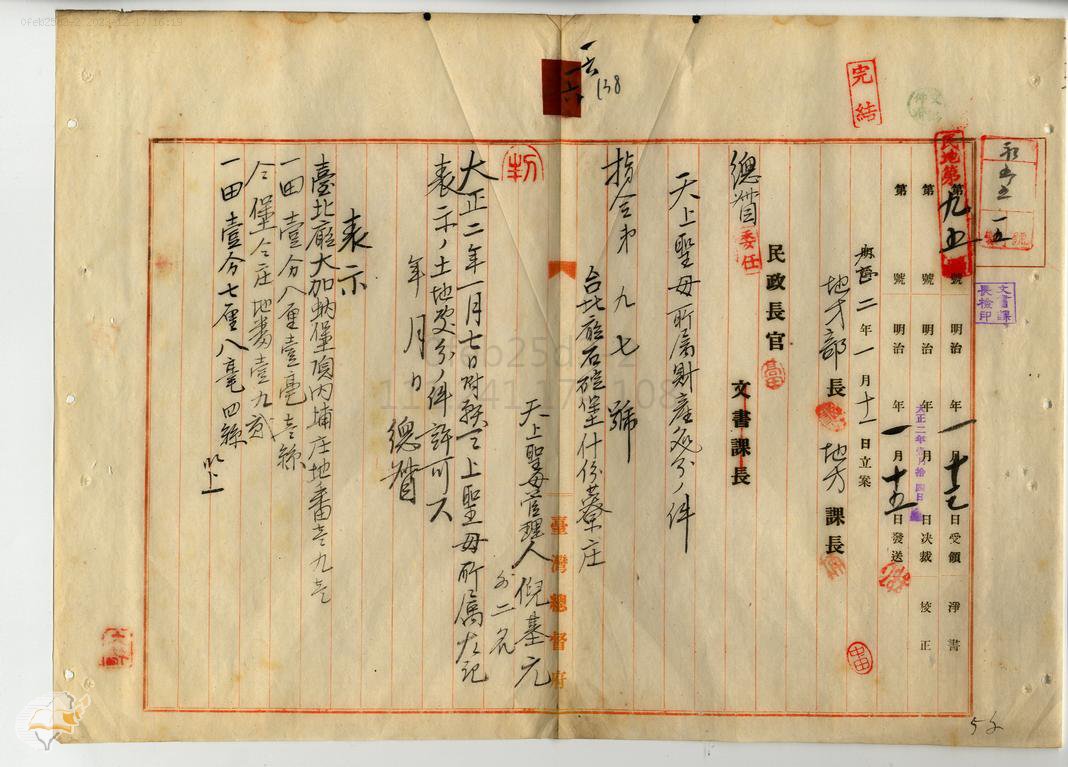 完結
民地第九五號 明治 年一月十三日受領 淨書
第 號 明治 年 月 日決裁 校正
大正二年壹月拾四日
第 號 明治 年一月十五日發送
文書課長檢印
二年一月十一日立案
地方部長 地方課長
民政長官 文書課長
總督 委任
天上聖母所属財産処分ノ件
指令第九七號
台北廳石碇堡什份藔庄
天上聖母管理人 倪基元
外二名
大正二年一月七日附願天上聖母所属左記
表示ノ土地処分ノ件許可ス
年 月 日 總督
表示
臺北廳大加蚋堡頂内埔庄地番壱九壱
一田壹分八厘壹毫壱絲
仝堡仝庄地番壹九貳
一田壹分七厘八毫四絲
以上
臺灣總督府
138
0feb25d2-2 2023-12-17 16:19